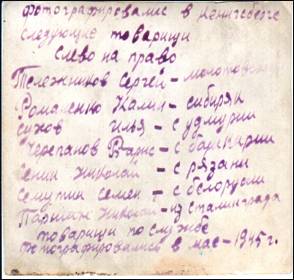 фотографировалис в Кенигсберге
следующие товарищи
слево на право
Тележников Сергей – молотовски
Романенко Калин – сибиряк
сухов илья – с удмурии
Черепанов Варис – с башкирии
Сенин николай – с рязани
Семутин семен – с белорусии
Паршан николай – из сталинграда
товарищи по службе
фотографировалися в мае – 1945 г.